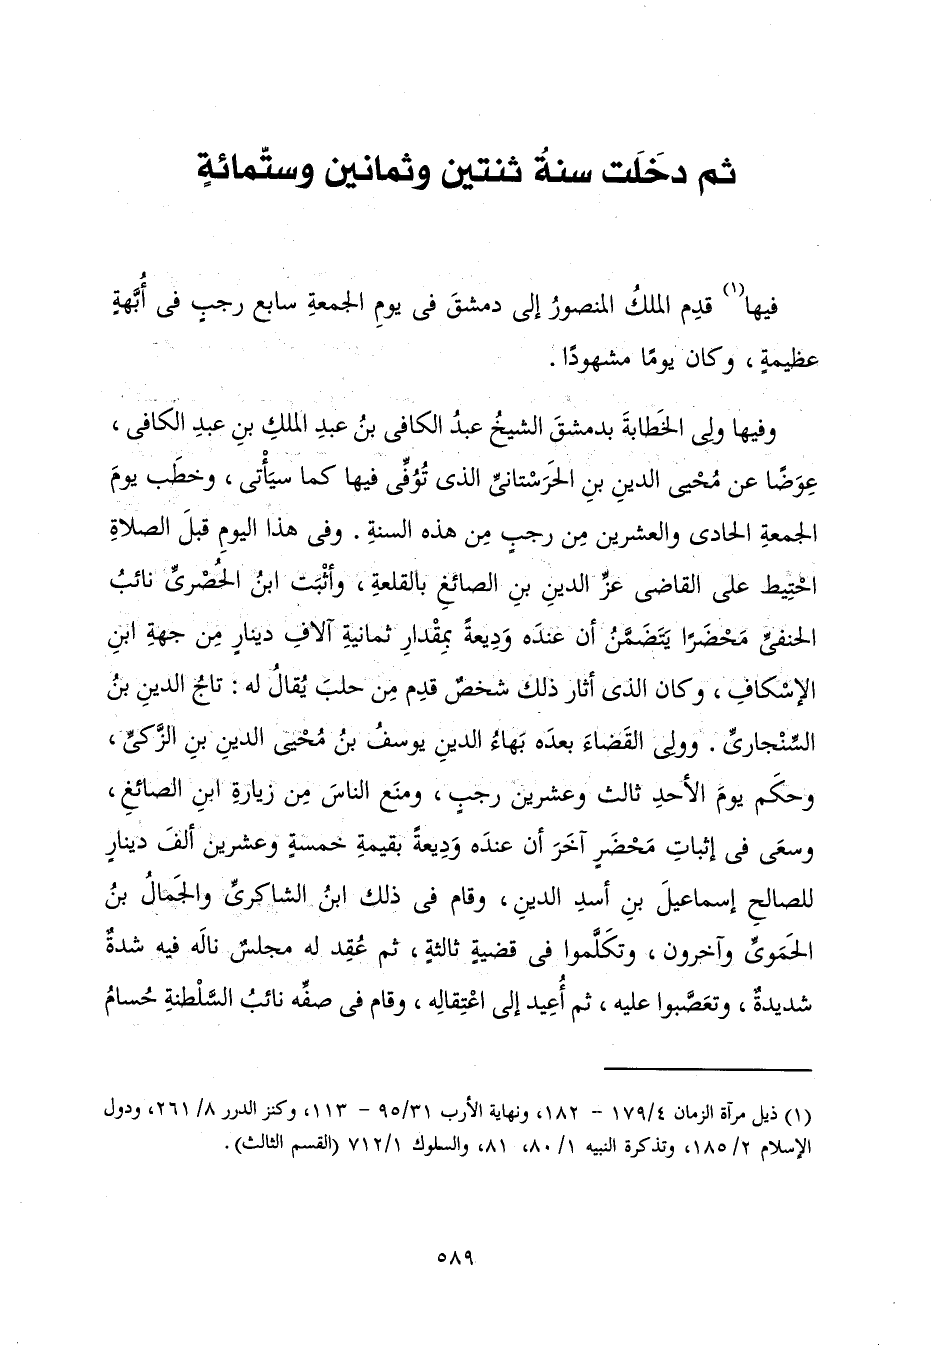 ثم دخَلَت سنةُ ثنتين وثمانين وستّمائةٍ
فيها(١) قدِم الملكُ المنصورُ إلى دمشقَ فى يومِ الجمعةِ سابع رجبٍ فى أُبَّهةٍ
عظيمةٍ ، وكان يومًا مشهودًا .
وفيها ولِى الخَطابةَ بدمشقَ الشيخُ عبدُ الكافى بنُ عبدِ الملكِ بنِ عبدِ الكافى ،
عِوَضًا عن مُحْيى الدينِ بنِ الحَرَسْتانىِّ الذى تُوُفِّى فيها كما سيَأْتى ، وخطَب يومَ
الجمعةِ الحادى والعشرين مِن رجبٍ مِن هذه السنةِ . وفى هذا اليومِ قبلَ الصلاةِ
احْتِيط على القاضى عزِّ الدينِ بنِ الصائغِ بالقلعةِ ، وأثْبَت ابنُ الحُصْرىِّ نائبُ
الحنفىِّ مَحْضَرًا يَتَضَمَّنُ أن عندَه وَدِيعةً بمِقْدارِ ثمانيةِ آلافِ دينارٍ مِن جهةِ ابنِ
الإسْكافِ ، وكان الذى أثار ذلك شخصٌ قدِم مِن حلبَ يُقالُ له : تاجُ الدينِ بنُ
السِّنْجارىِّ . وولِى القَضاءَ بعدَه بَهاءُ الدينِ يوسفُ بنُ مُحْيى الدينِ بنِ الزَّكىِّ ،
وحكَم يومَ الأحدِ ثالث وعشرين رجبٍ ، ومنَع الناسَ مِن زيارةِ ابنِ الصائغِ ،
وسعَى فى إثباتِ مَحْضَرٍ آخَرَ أن عندَه وَدِيعةً بقيمةِ خمسةٍ وعشرين ألفَ دينارٍ
للصالحِ إسماعيلَ بنِ أسدِ الدينِ ، وقام فى ذلك ابنُ الشاكرىِّ والجَمالُ بنُ
الحَمَوىِّ وآخرون ، وتكَلَّموا فى قضيةٍ ثالثةٍ ، ثم عُقِد له مجلسٌ نالَه فيه شدةٌ
شديدةٌ ، وتعَصَّبوا عليه ، ثم أُعِيد إلى اعْتِقالِه ، وقام فى صفِّه نائبُ السَّلْطنةِ حُسامُ
(١) ذيل مرآة الزمان ١٧٩/٤ - ١٨٢، ونهاية الأرب ٩٥/٣١ - ١١٣، وكنز الدرر ٨/ ٢٦١، ودول
الإسلام ٢/ ١٨٥، وتذكرة النبيه ١/ ٨٠، ٨١، والسلوك ٧١٢/١ (القسم الثالث).
٥٨٩